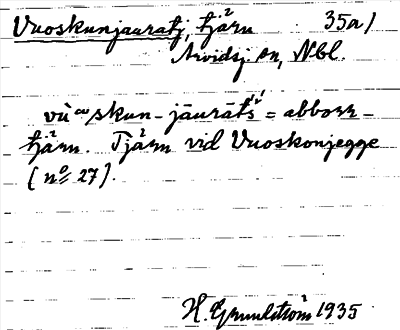 Vuoskunjauratj, tjärn 35a)
Arvidsj. sn, Nbl.
vùoskun-jāurātš = abborr-
tjärn. Tjärn vid Vuoskonjegge
(nº 27).
H. Grundström 1935